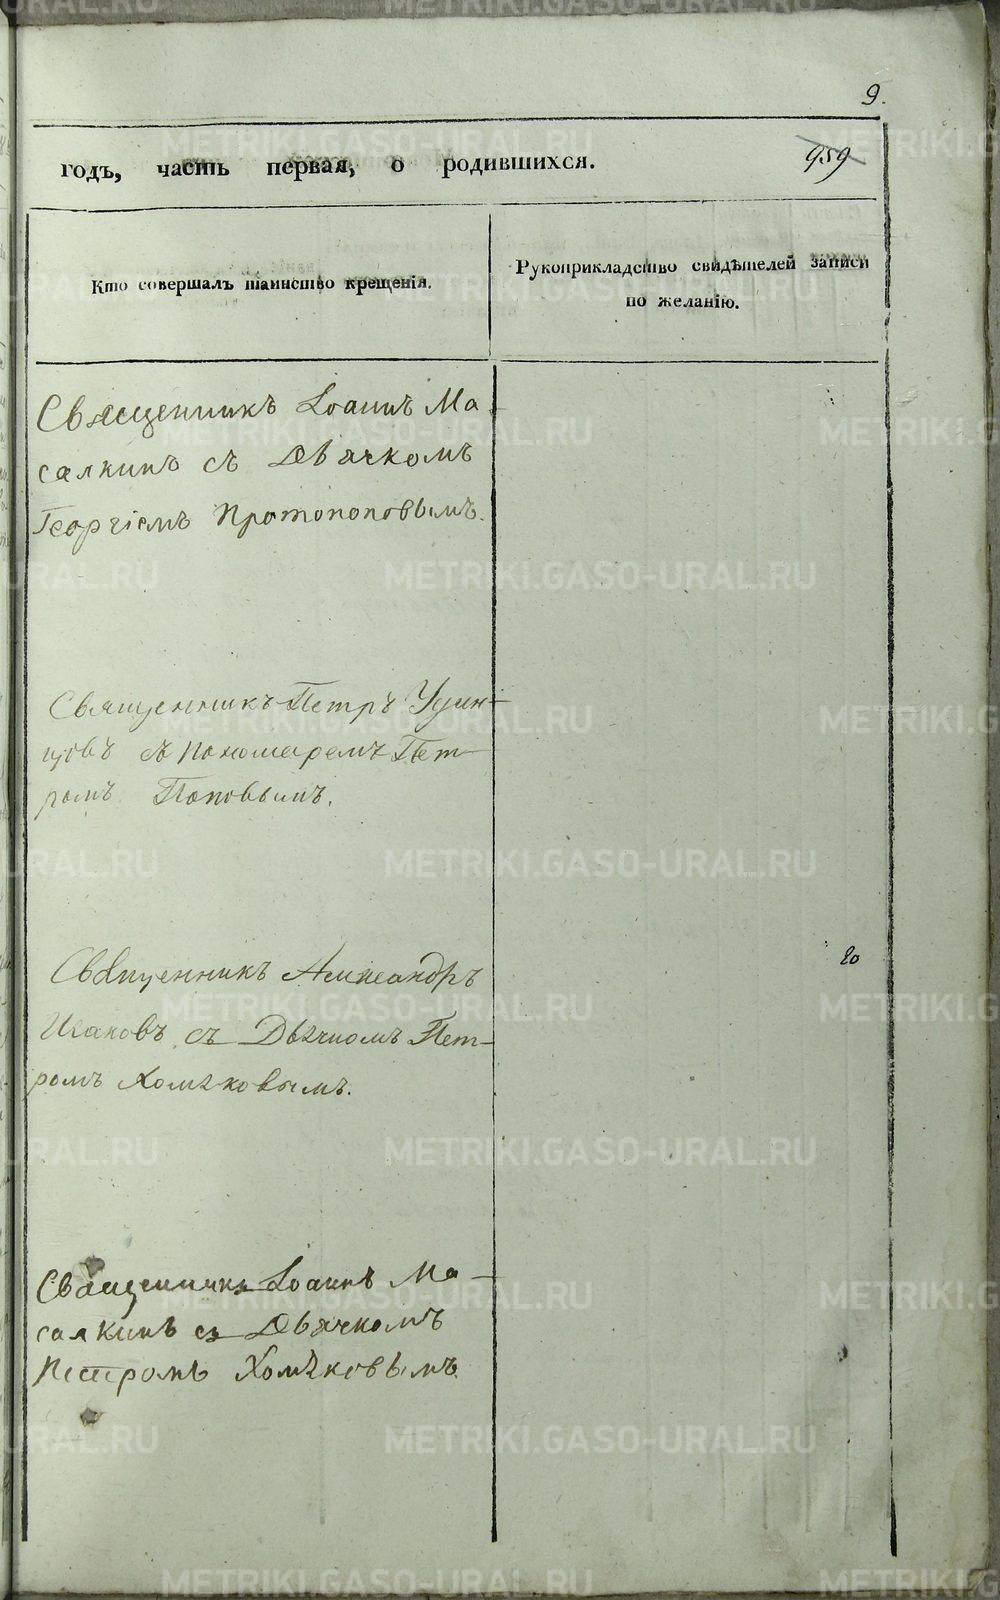 9.
959
годъ, часть первая, о родившихся.
Кто совершалъ таинство крещенія.
Рукоприкладство свидѣтелей записи
по желанію.
Священникъ Іоаннъ Ма
салкинъ съ Дьячкомъ
Георгіемъ Протопоповымъ.
Священникъ Петръ Удин-
цовъ съ Пономаремъ Пет-
ромъ Поповымъ.
20
Священникъ Александръ
Исаковъ съ Дьячкомъ Пет-
ромъ Хомяковымъ.
Священникъ Іоаннъ Ма-
салкинъ съ Дьячкомъ
Петромъ Хомяковымъ
METRIKI.GASO-URAL.RU